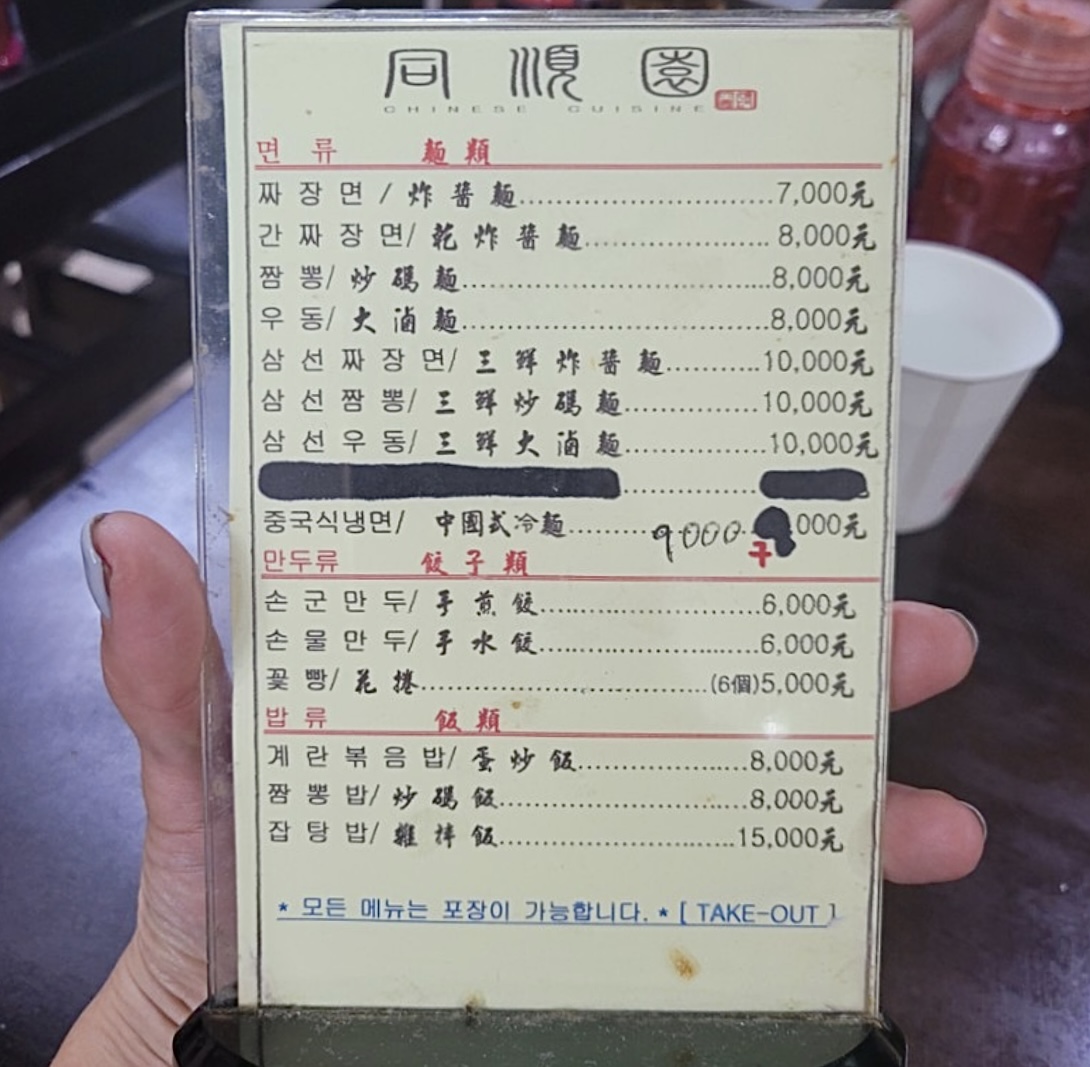 同順園
CHINESE CUISINE
면 류 麵 類
짜 장 면 / 炸 醬 麵 7,000元
간 짜 장 면/ 乾 炸 醬 麵 8,000元
짬 뽕/ 炒 碼 麵 8,000元
우 동/ 大 滷 麵 8,000元
삼 선 짜 장 면/ 三 鮮 炸 醬 麵 10,000元
삼 선 짬 뽕/ 三 鮮 炒 碼 麵 10,000元
삼 선 우 동/ 三 鮮 大 滷 麵 10,000元
중국식냉면/ 中國式冷麵 9000 ,000元
만두류 餃 子 類
손 군 만 두/ 手 煎 餃 6,000元
손 물 만 두/ 手 水 餃 6,000元
꽃 빵/ 花 捲 (6個)5,000元
밥 류 飯 類
계 란 볶 음 밥/ 蛋 炒 飯 8,000元
짬 뽕 밥/ 炒 碼 飯 8,000元
잡 탕 밥/ 雜 拌 飯 15,000元
* 모든 메뉴는 포장이 가능합니다. * [ TAKE-OUT ]